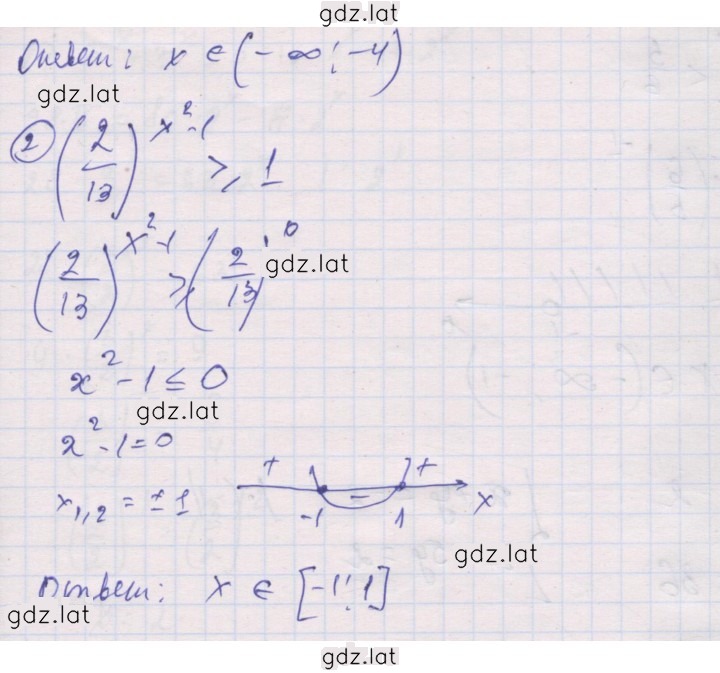 gdz.lat
Ответ: x ∈ (-∞; -4)
gdz.lat
② (2/13)^(x²-1) ≥ 1
(2/13)^(x²-1) ≥ (2/13)^0
gdz.lat
x² - 1 ≤ 0
gdz.lat
x² - 1 = 0
+ - +
x₁,₂ = ± 1
-1 1 x
gdz.lat
Ответ: x ∈ [-1; 1]
gdz.lat
gdz.lat